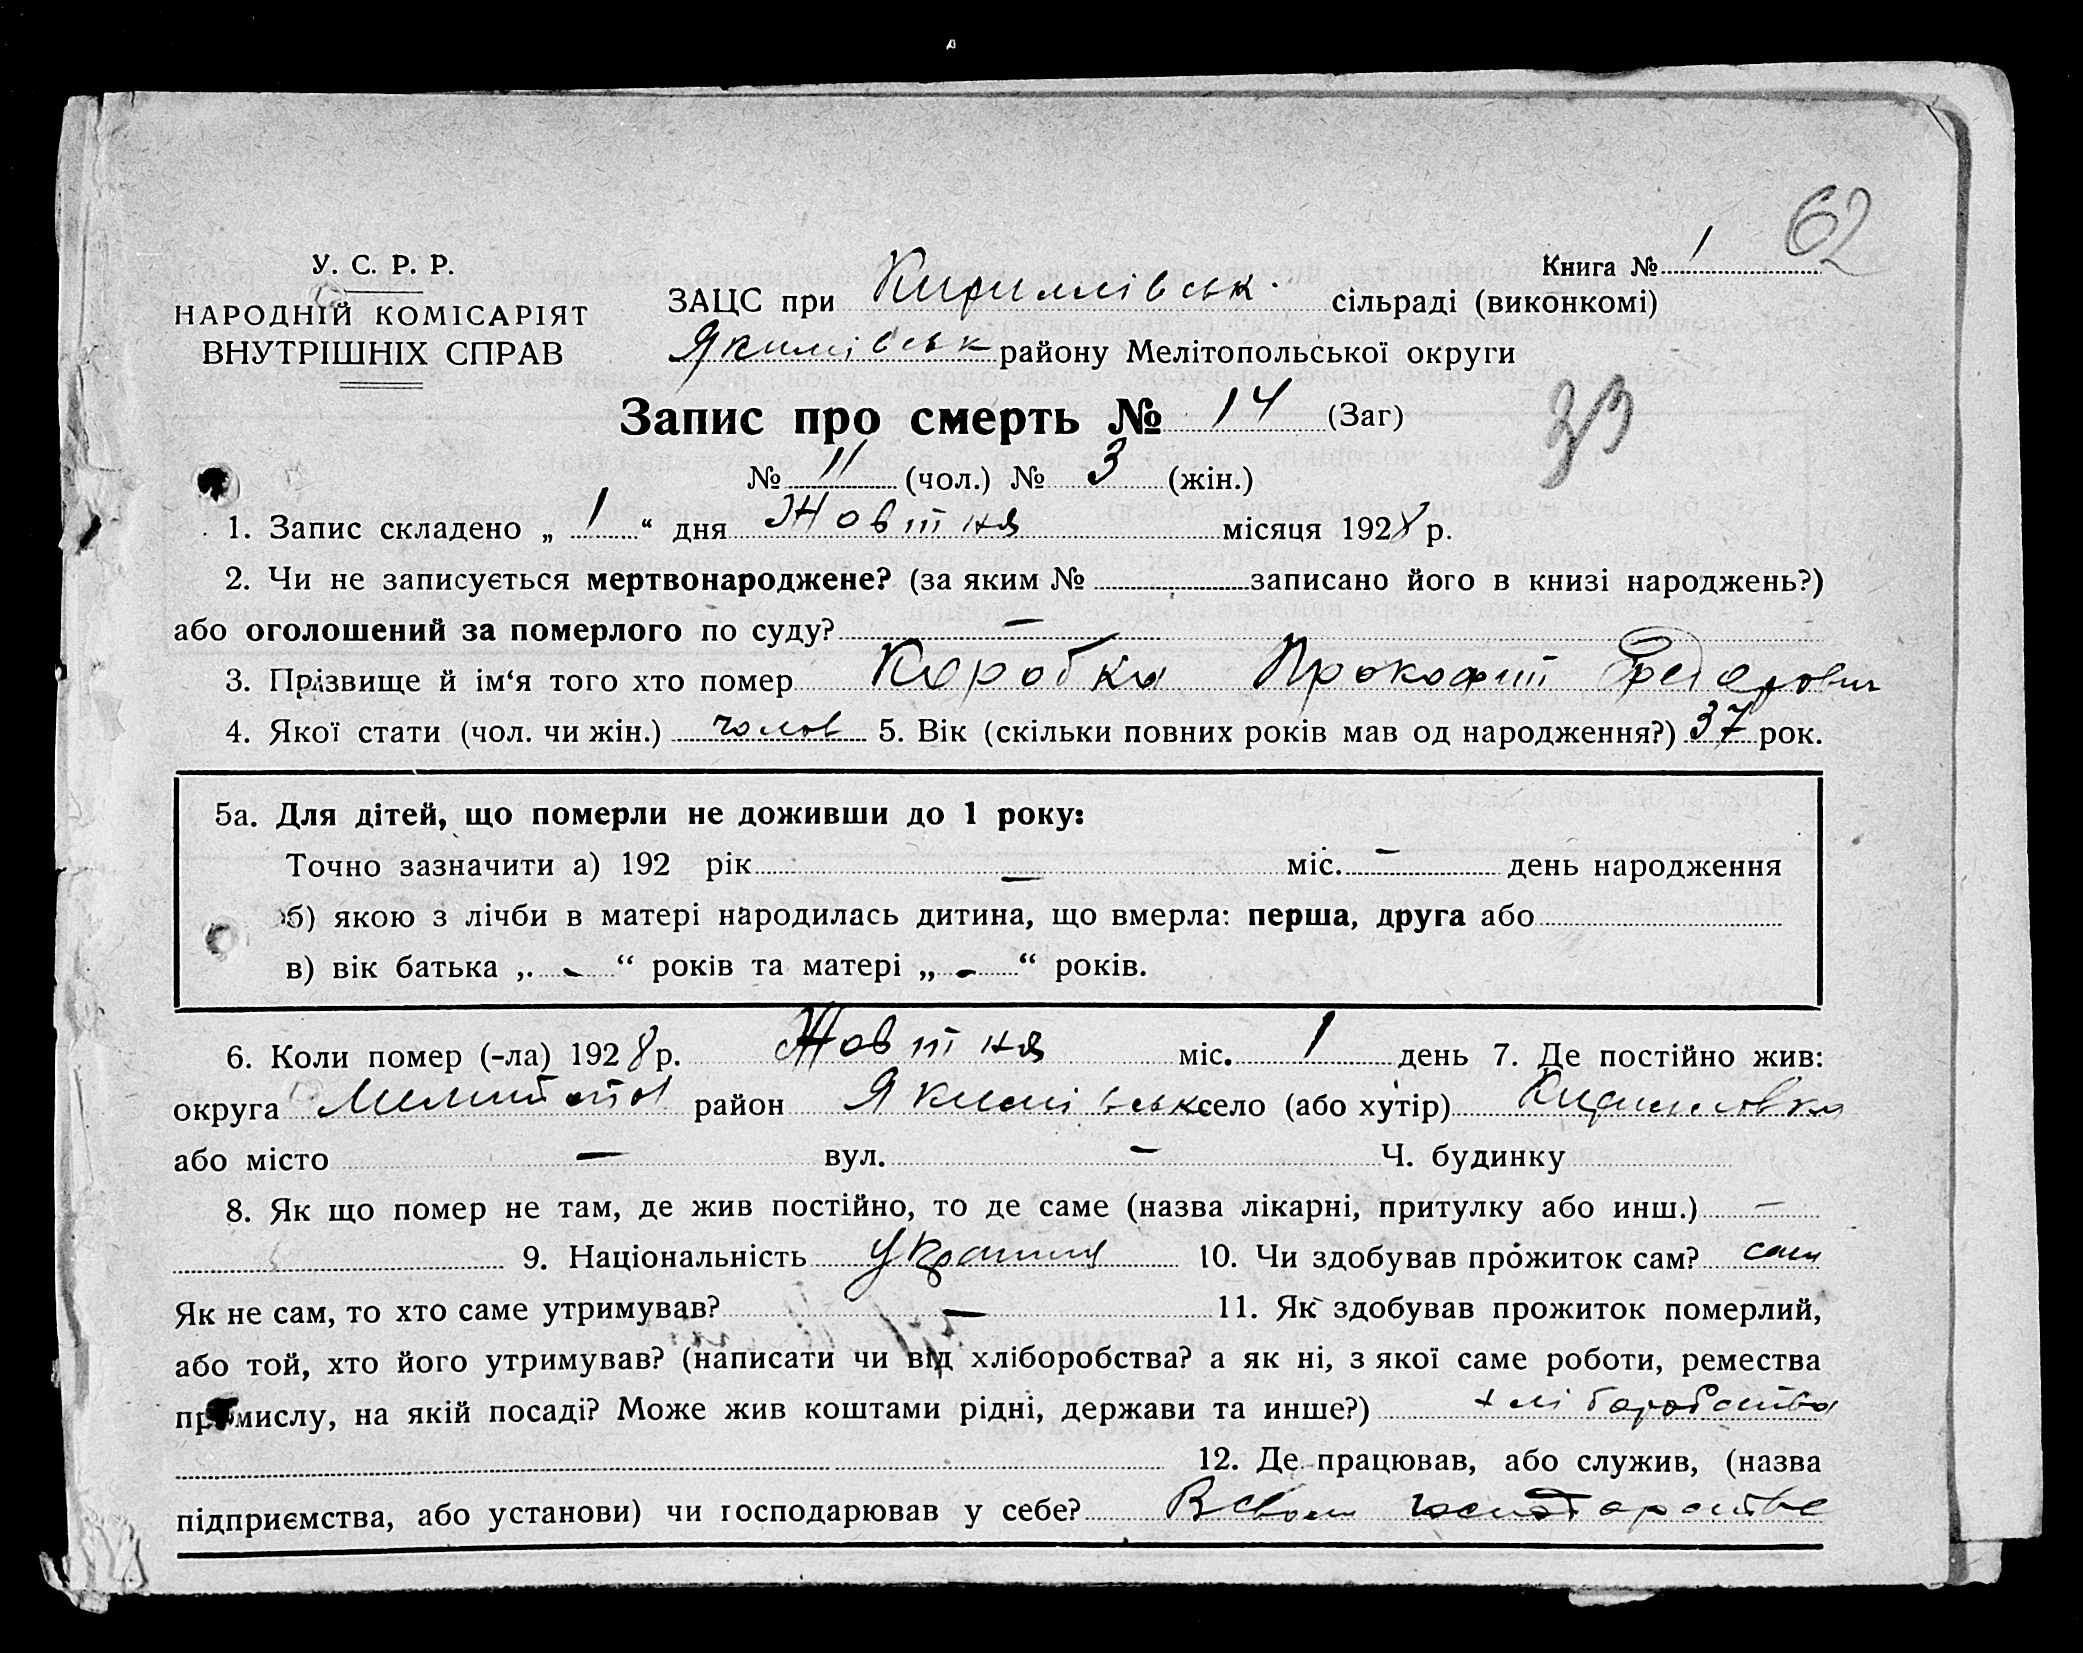 62
Книга № 1
У. С. Р. Р.
НАРОДНІЙ КОМІСАРІЯТ
ВНУТРІШНІХ СПРАВ
ЗАЦС при Кириллівськ. сільраді (виконкомі)
Якимівськ району Мелітопольської округи
Запис про смерть № 14 (Заг)
33
№ 11 (чол.) № 3 (жін.)
1. Запис складено „ 1 “ дня Жовтня місяця 1928 р.
2. Чи не записується мертвонароджене? (за яким № записано його в книзі народжень?)
або оголошений за померлого по суду? —
3. Прізвище й ім‘я того хто помер Коробка Прокофий Федорович
4. Якої стати (чол. чи жін.) чолов 5. Вік (скільки повних років мав од народження?) 37 рок.
5а. Для дітей, що померли не доживши до 1 року:
Точно зазначити а) 192 рік — міс. — день народження
б) якою з лічби в матері народилась дитина, що вмерла: перша, друга або
в) вік батька „ - “ років та матері „ - “ років.
6. Коли помер (-ла) 1928 р. Жовтня міс. 1 день 7. Де постійно жив:
округа Мелитоп район Якимівськ село (або хутір) Кирилловка
або місто — вул. — Ч. будинку
8. Як що помер не там, де жив постійно, то де саме (назва лікарні, притулку або инш.) —
9. Національність Украинц 10. Чи здобував прожиток сам? сам
Як не сам, то хто саме утримував? — 11. Як здобував прожиток померлий,
або той, хто його утримував? (написати чи від хліборобства? а як ні, з якої саме роботи, ремества
промислу, на якій посаді? Може жив коштами рідні, держави та инше?) хліборобства
12. Де працював, або служив, (назва
підприємства, або установи) чи господарював у себе? В своем господарстве